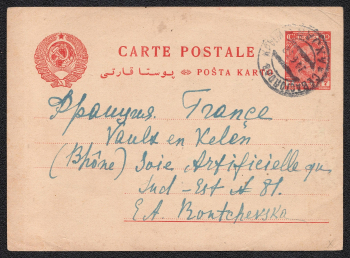 CARTE POSTALE
پوستا قارتى POŠTA KARTЬ
Франция. France
Vaulx en Velen
(Rhône) Soie Artificielle du
Sud-Est A 81.
E.A. Rontchevska